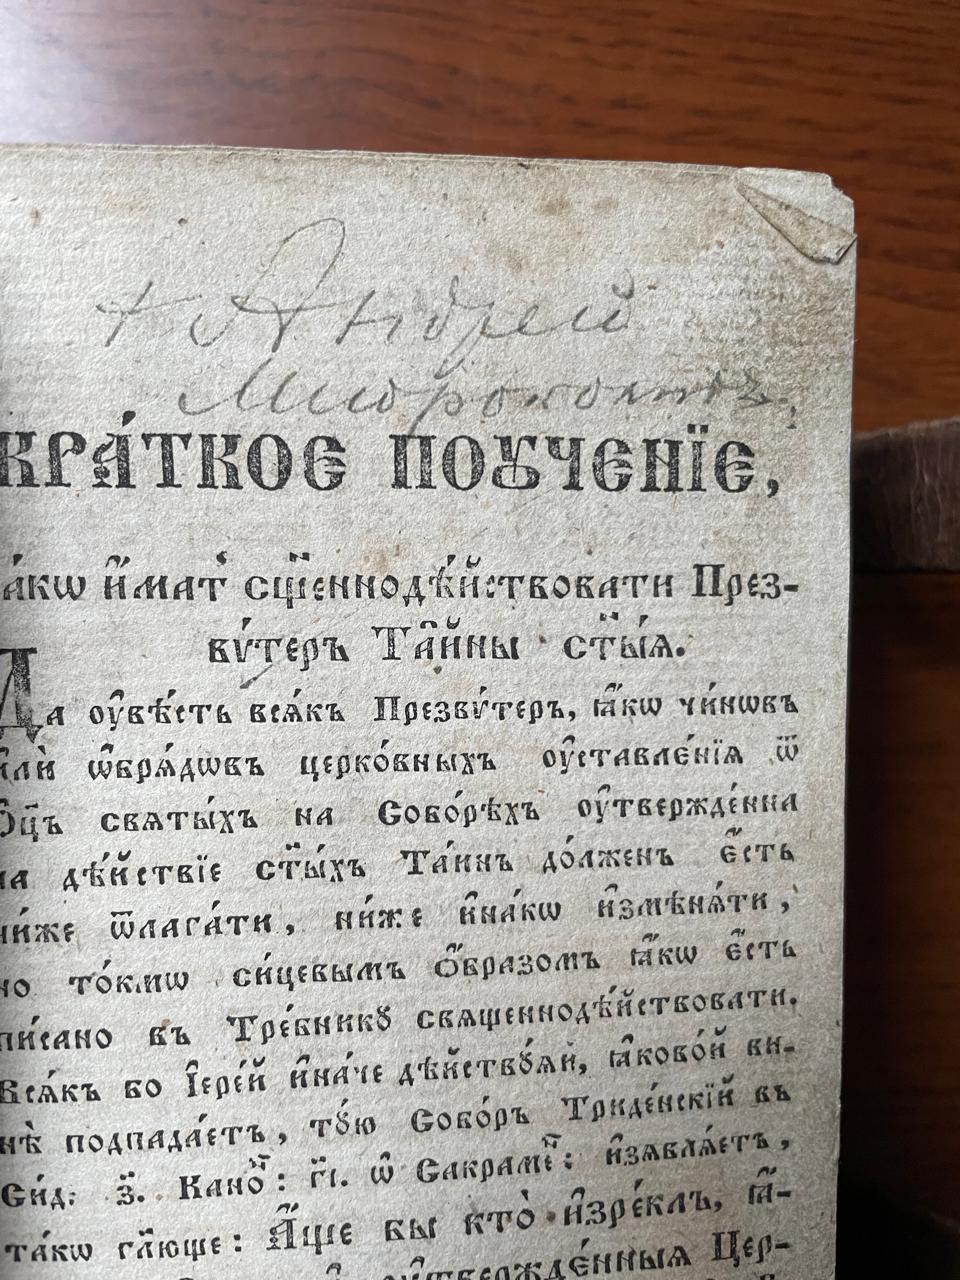 + Андрей
КРА́ТКОЕ ПОꙊЧЕНЇЕ,
ꙗ҆́кѡ и҆́мат̾ сщ҃еннодѣ́йствовати През-
вѵ́теръ Та̑йны ст҃ы́ѧ.
Да ѹ҆вѣ́сть всѧ́къ Презвѵ́теръ, ꙗ҆́кѡ чи́нѡвъ
и҆лѝ ѡ҆брѧ́дѡвъ церко́вныхъ ѹ҆ставле́нїѧ ѿ
Ѻ҆ц҃ъ свѧты́хъ на Собо́рѣхъ ѹ҆твержде́нна
на дѣ́йствїе ст҃ы́хъ Та́инъ до́лженъ є҆́сть
ни́же ѿлага́ти, ни́же и҆на́кѡ и҆змѣнѧ́ти,
но то́кмѡ си́цевымъ ѻ҆́бразомъ ꙗ҆́кѡ є҆́сть
пи́сано въ Тре́бникꙋ свѧщеннодѣ́йствовати.
Всѧ́къ бо І҆ере́й и҆на́че дѣ́йствꙋѧй, ꙗ҆ково́й ви-
нѣ̀ подпада́етъ, тꙋ́ю Собо́ръ Триде́нскїй въ
Сид: з҃. Кано: гі҃. ѡ҆ Сакраме: и҆з̾ѧвлѧ́етъ,
та́кѡ гл҃юще: А҆́ще бы кто̀ и҆зре́клъ, ꙗ҆́-
ѹ҆твержде́нныѧ Цер-